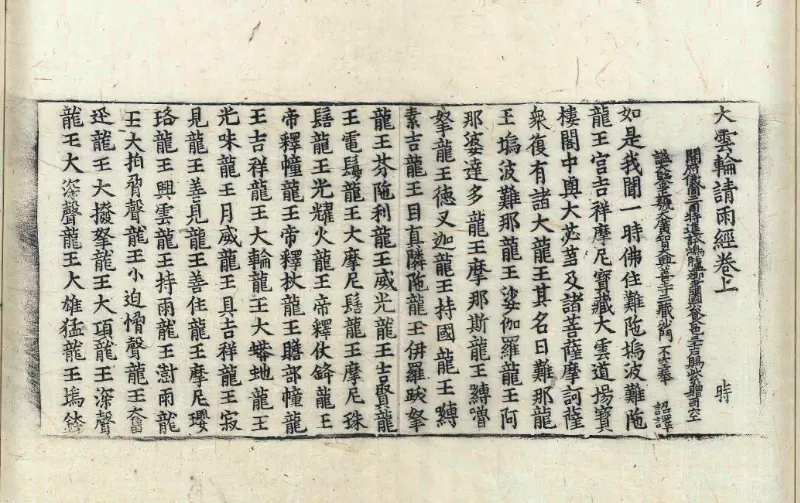 大雲輪請雨經卷上 時
開府儀同三司特進試鴻臚卿肅國公食邑三千戶賜紫贈司空
大廣智大興善寺三藏沙門不空奉 詔譯
如是我聞一時佛住難陁塢波難陁
龍王宮吉祥摩尼寶藏大雲道場寶
樓閣中與大苾蒭及諸菩薩摩訶薩
衆復有諸大龍王其名曰難那龍
王塢波難那龍王娑伽羅龍王阿
那婆達多龍王摩那斯龍王嚩嚕
拏龍王德叉迦龍王持國龍王嚩
素吉龍王目真隣陁龍王伊羅跋拏
龍王芬陁利龍王威光龍王吉賢龍
王電鬘龍王大摩尼髻龍王摩尼珠
髻龍王光耀火龍王帝釋仗鋒龍王
帝釋幢龍王帝釋杖龍王贍部幢龍
王吉祥龍王大輪龍王大蟒虵龍王
光味龍王月威龍王具吉祥龍王寂
見龍王善見龍王善住龍王摩尼瓔
珞龍王興雲龍王持雨龍王澍雨龍
王大拍脅聲龍王小迫憎聲龍王奮
迅龍王大撥拏龍王大項龍王深聲
龍王大深聲龍王大雄猛龍王塢鉢